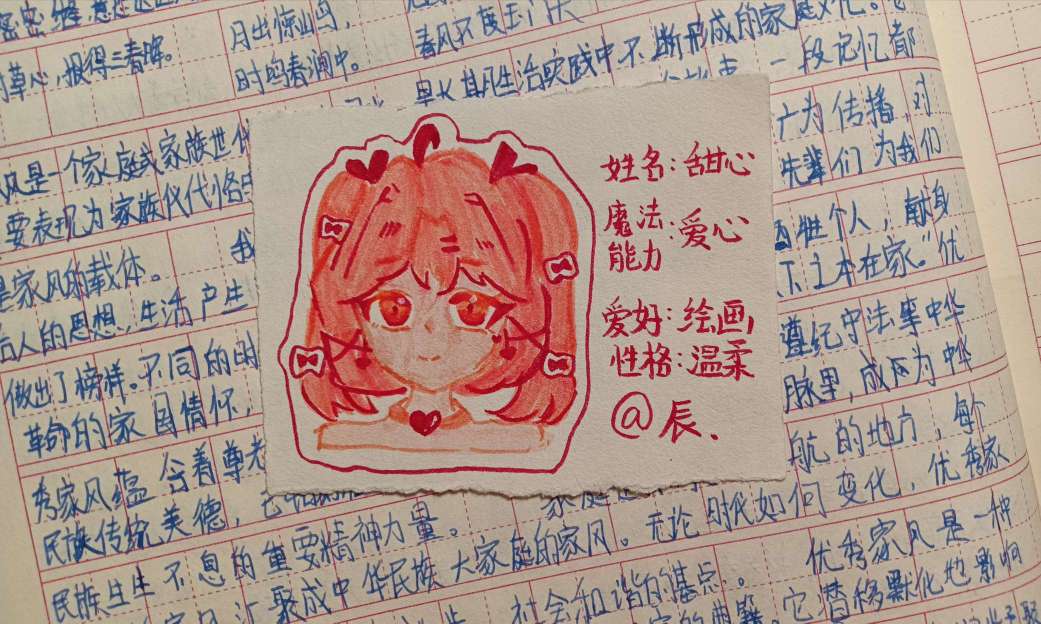 月出惊山鸟,
时鸣春涧中。
寸草心,报得三春晖。
春风不度玉门关
是长期生活实践中不断形成的家庭文化。
一段记忆都
风是一个家庭或家族世代
广为传播,对
要表现为家族仪代
先辈们为我们
是家风的载体。 我
牺牲个人,献身
后人的思想,生活产生
下之本在家."优
做出了榜样.不同的的
遵纪守法等中华
革命的家国情怀,
脉里,成为中华
秀家风蕴含着尊老
航的地方,每个
民族传统美德,
民族生生不息的重要精神力量。
无论时代如何变化,优秀家
汇聚成中华民族大家庭的家风。
社会和谐的基点。 优秀家风是一种
它潜移默化地影响
姓名:甜心
魔法:爱心
能力
爱好:绘画,
性格:温柔
@辰、